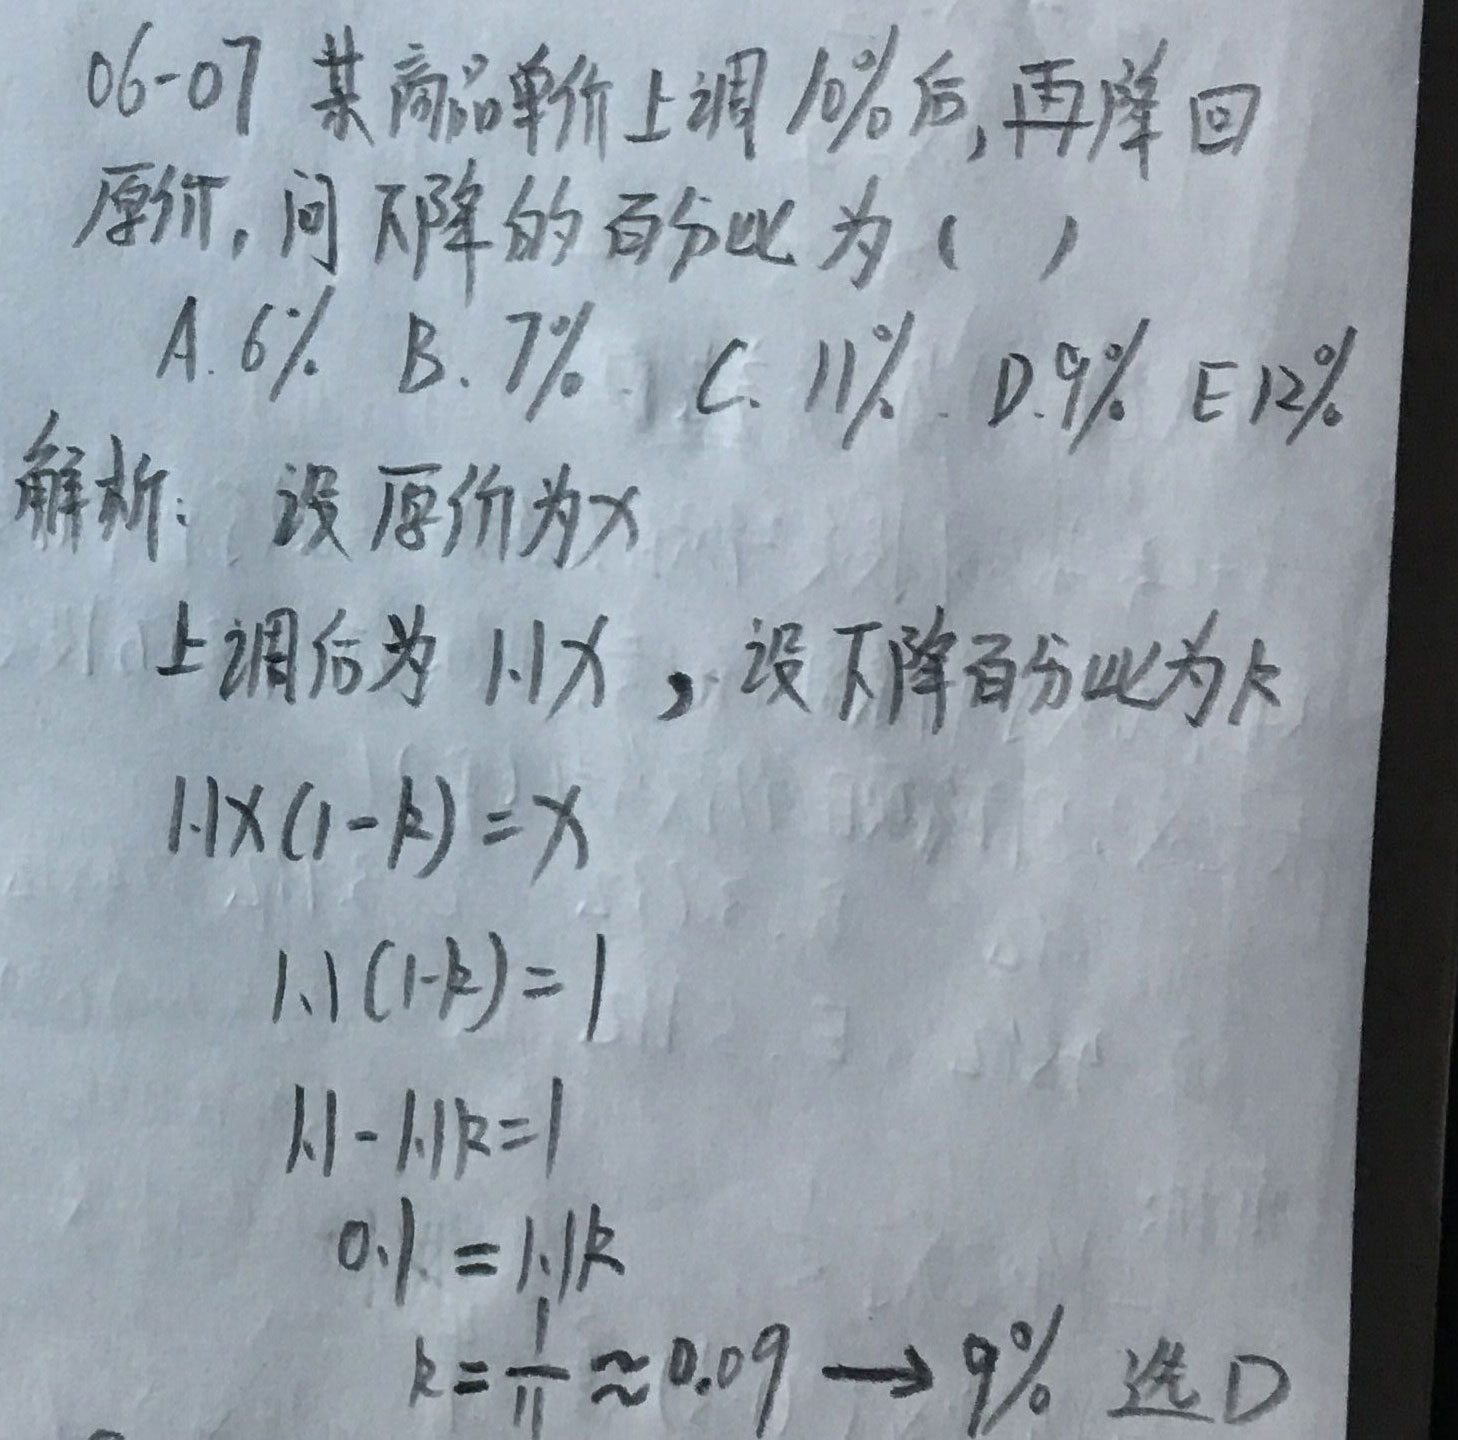 06-07 某商品单价上调10%后,再降回
原价,问下降的百分比为( )
A.6% B.7% C.11% D.9% E12%
解析:设原价为x
上调后为1.1x,设下降百分比为k
1.1x(1-k)=x
1.1(1-k)=1
1.1-1.1k=1
0.1=1.1k
k=1/11≈0.09→9% 选D